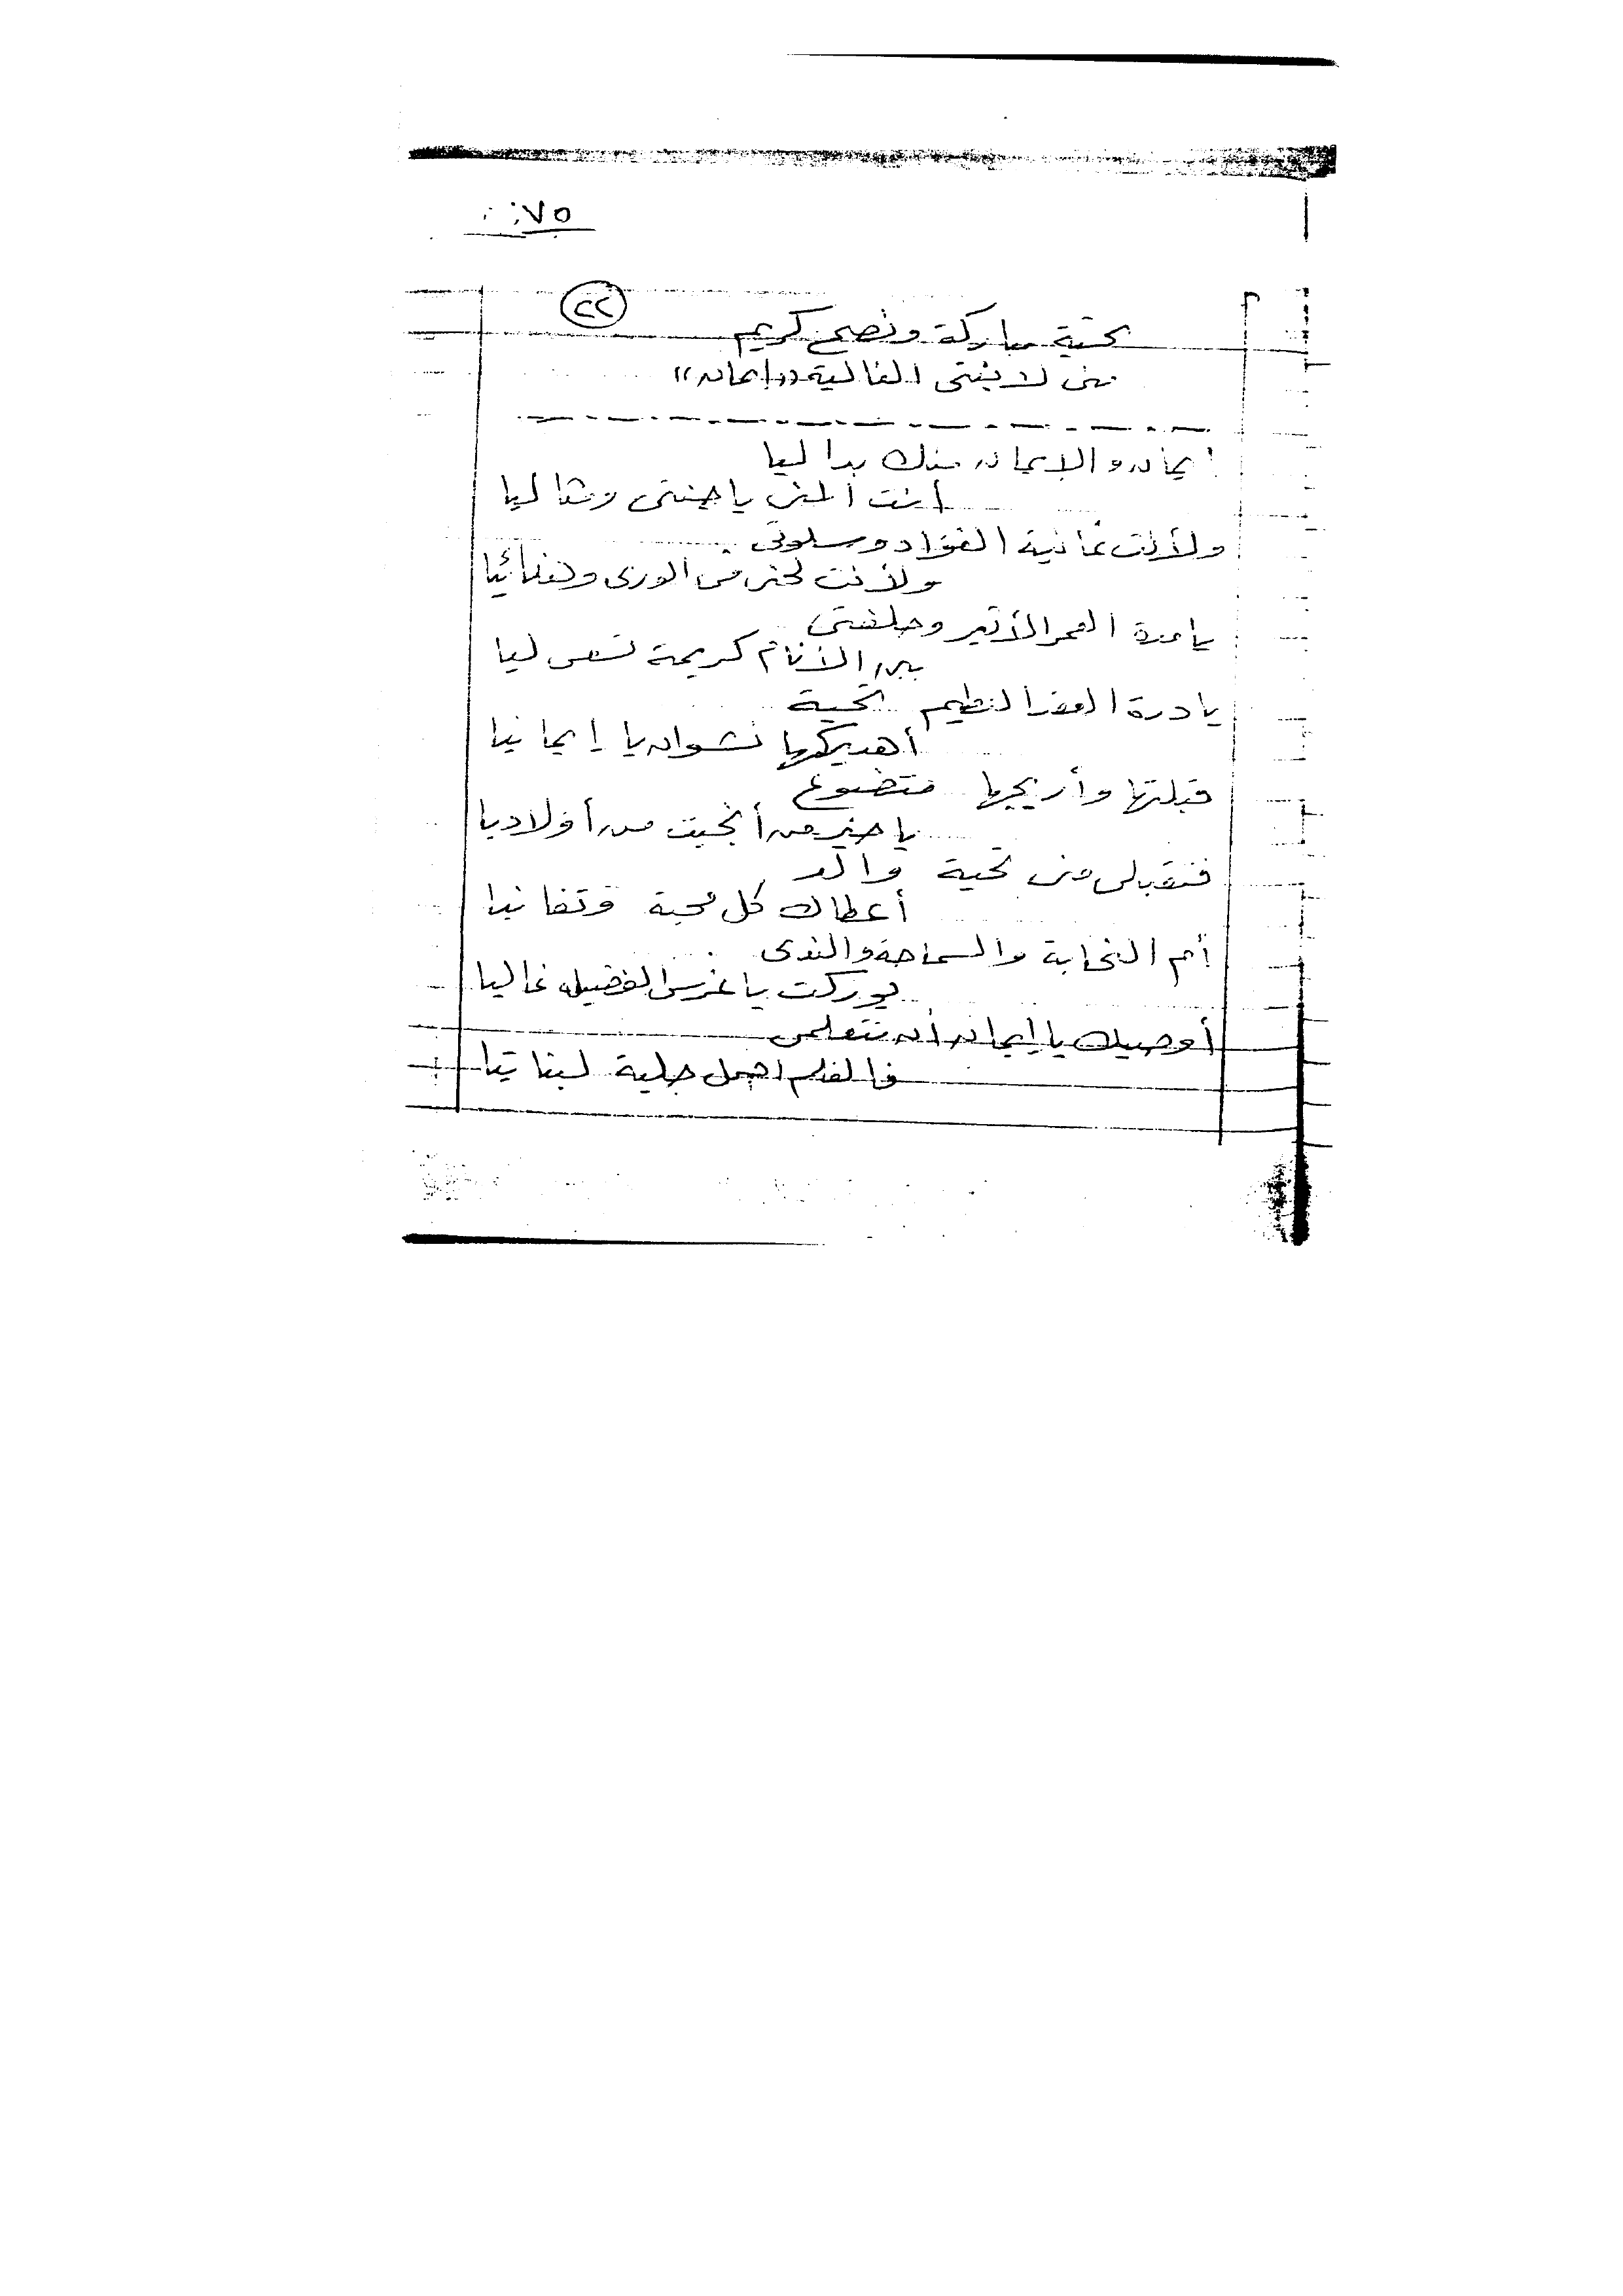 ٧٥
٢٢
تحية مباركة ونصح كريم
منى لابنتى الغالية ((إيمان))
إيمان والإيمان منك بدا ليا
أنت المنى يا جنتى ومثاليا
ولأنت غانية الفؤاد وسلوتى
ولأنت لحنى فى الورى وغنائيا
يا درة العمر الأثير وحلفتى
بين الأنام كريمة تسعى ليا
يا درة العقد النظيم تحية
أهديكها نشوان يا إيمانيا
قبلتها وأريجها متضوع
يا خير من أنجبت من أولاديا
فتقبلى منى تحية والد
أعطاك كل محبة وتفانيا
أم النجابة والسماحة والندى
بوركت يا غرس الفضيلة غاليا
أوصيك يا إيمان أن تتعلمى
فالعلم أجمل حلية لبناتيا